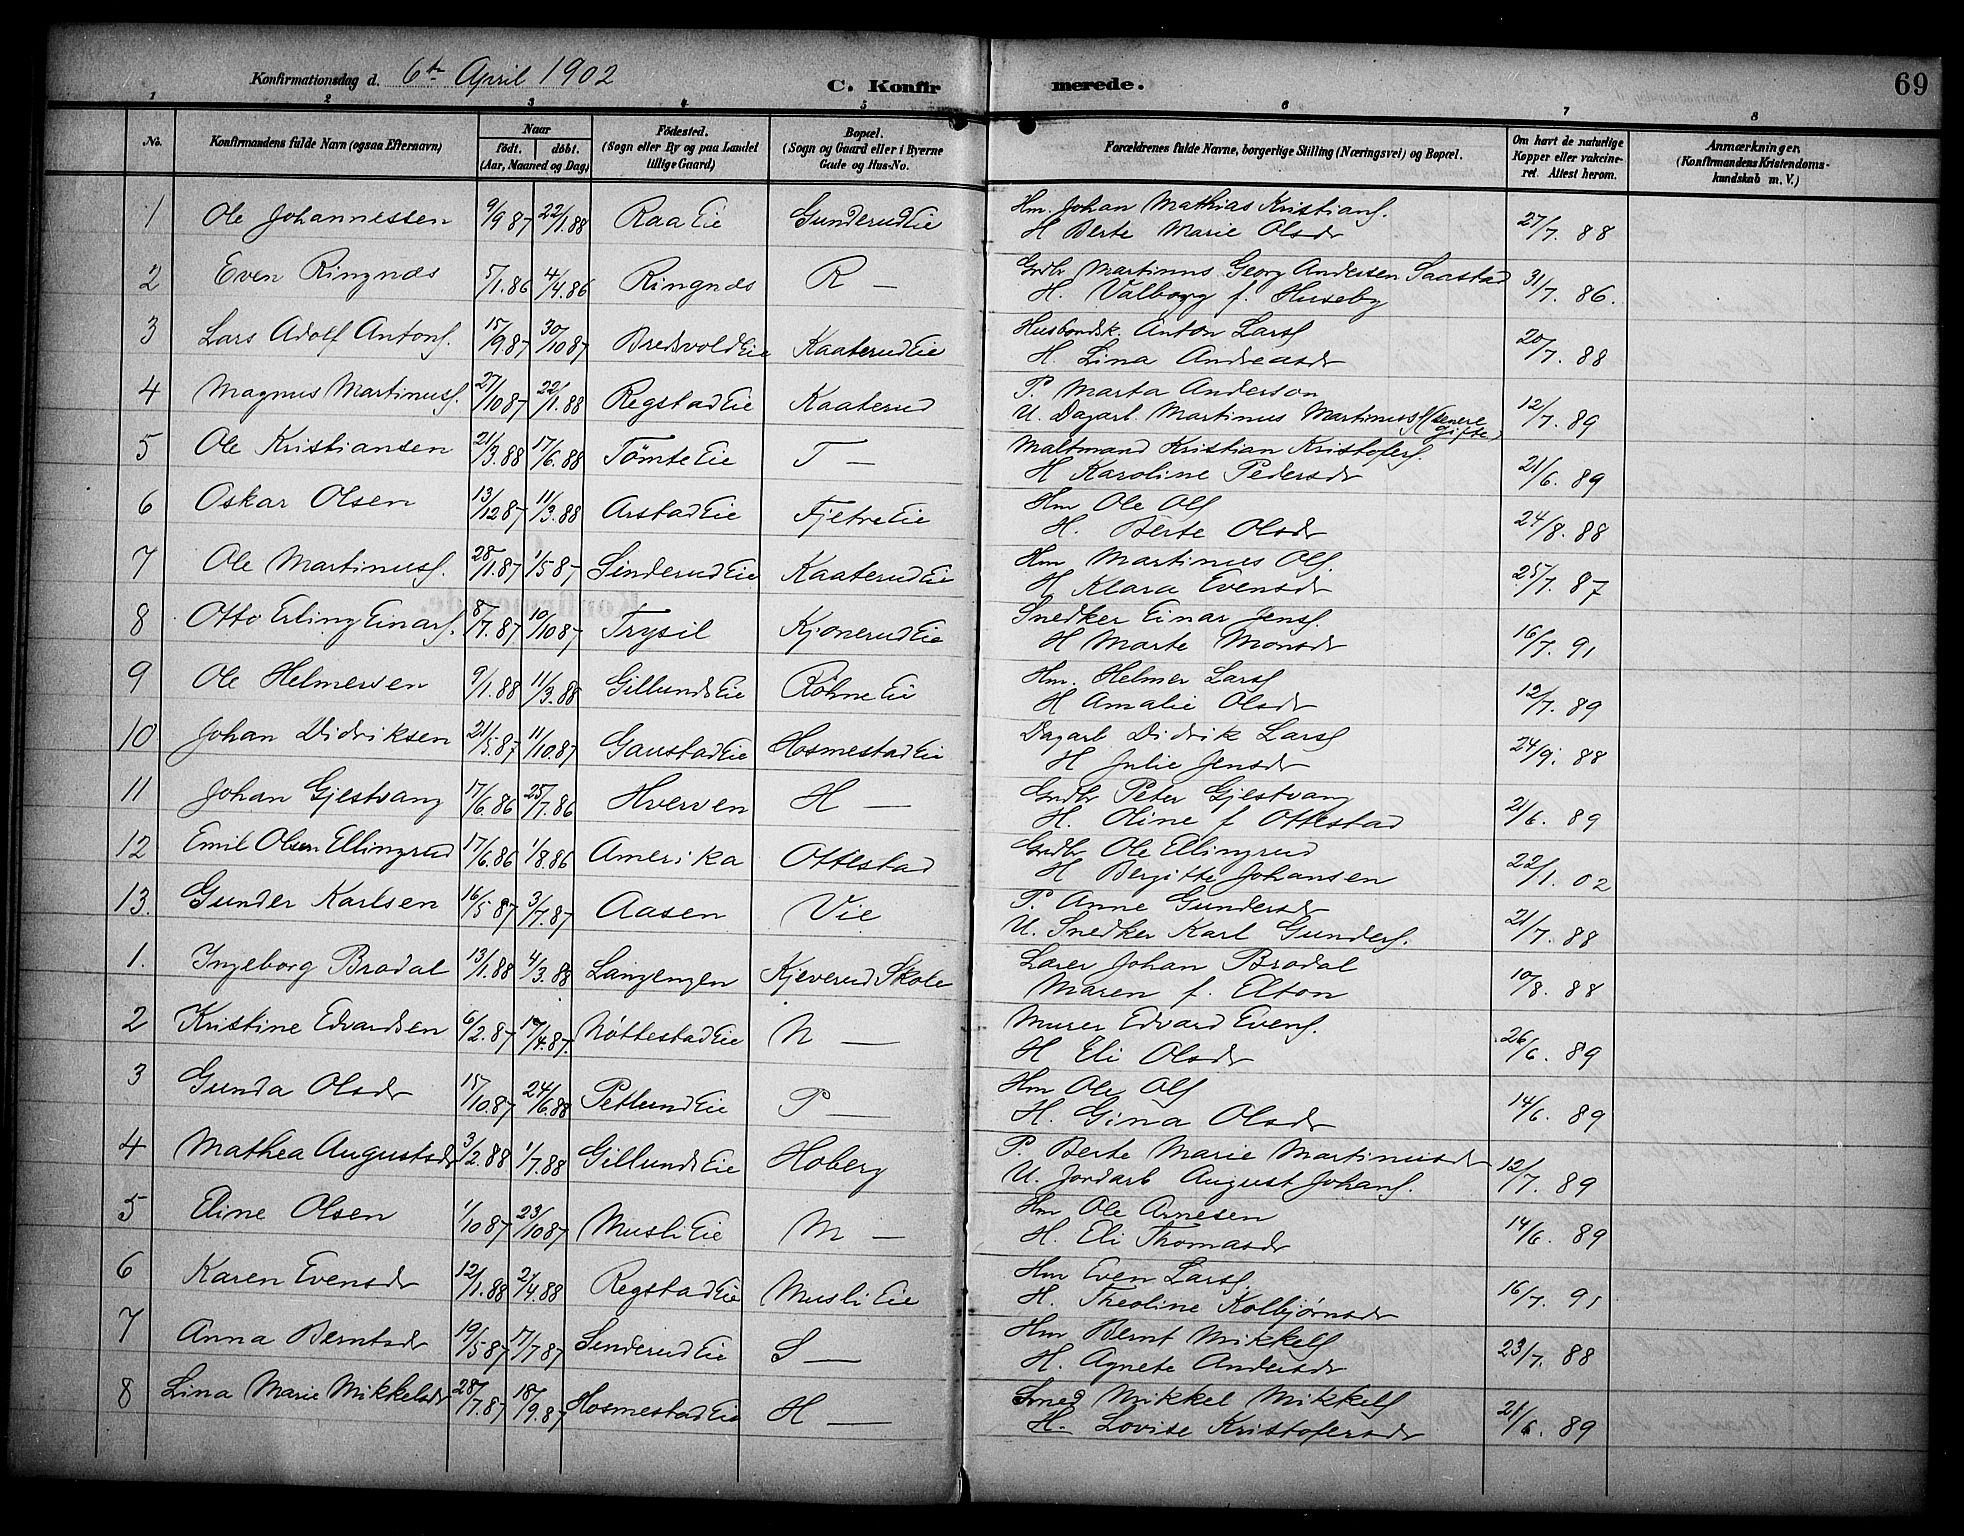 Konfirmationsdag d. 6te April 1902 C. Konfirmerede. 69
1 2 3 4 5 6 7 8
No. Konfirmandens fulde Navn (ogsaa Efternavn) Naar født. døbt. (Aar, Maaned og Dag) Fødested. (Sogn eller By og paa Landet tillige Gaard) Bopæl. (Sogn og Gaard eller i Byerne Gade og Hus-No. Forældrenes fulde Navne, borgerlige Stilling (Næringsvei) og Bopæl. Om havt de naturlige Kopper eller vakcineret. Attest herom. Anmærkninger. (Konfirmandens Kristendomskundskab m. V.)
1 Ole Johannessen 9/9 87 22/1.88 Raa Eie Gunderud Eie Hm. Johan Mathias Kristians. 27/7. 88
H Berte Marie Olsdr
2 Even Ringnæs 5/1.86 4/4.86 Ringnæs R — Grdbr Martinus Georg Andersen Saastad 31/7. 86.
H. Valborg f. Huseby
3 Lars Adolf Antons. 15/9 87 30/10 87 Bredsvold Eie Kaaterud Eie Husbondsk. Anton Lars. 20/7. 88
H. Lina Andreasdr
4 Magnus Martinuss. 27/10 87 22/1.88 Regstad Eie Kaaterud P. Marta Anderson 12/7. 89
U. Dagarb. Martinus Martinuss (senere gifte)
5 Ole Kristiansen 21/3.88 17/6.88 Tömte Eie T — Maltmand Kristian Kristofers. 21/6. 89
H Karoline Pedersdr
6 Oskar Olsen 13/12 87 11/3.88 Arstad Eie Fjetre Eie Hm Ole Ols 24/8. 88
H. Berte Olsdr
7 Ole Martinuss. 28/1.87 1/5 87 Sinderud Eie Kaaterud Eie Hm Martinus Ols. 25/7. 87
H Klara Evensdr
8 Otto Erling Einars. 8/7.87 10/10 87 Trysil Kjonerud Eie Snedker Einar Jens. 16/7. 91
H Marte Monsdr
9 Ole Helmersen 9/1.88 11/3.88 Gillunds Eie Röhne Eie Hm. Helmer Lars 12/7. 89
H Amalie Olsdr
10 Johan Didriksen 21/5.87 11/10.87 Gaustad Eie Hosmestad Eie Dagarb Didrik Lars 24/9. 88
H Julie Jensdr
11 Johan Gjestvang 17/6.86 25/7.86 Hverven H — Grdbr Peter Gjestvang 21/6. 89
H. Oline f Ottestad
12 Emil Olsen Ellingrud 17/6.86 1/8.86 Amerika Ottestad Grdbr Ole Ellingrud 22/1. 02
H Bergitte Johansen
13. Gunder Karlsen 16/5 87 3/7.87 Aasen Vie P. Anne Gundersdr 21/7. 88
U. Snedker Karl Gunders.
1. Ingeborg Brodal 13/1.88 4/3.88 Langengen Kjeverud Skole Lærer Johan Brodal 10/8. 88
Maren f. Elton
2 Kristine Edvardsen 6/2.87 17/4.87. Nöttestad Eie N — Murer Edvard Evens. 26/6. 89
H Eli Olsdr
3 Gunda Olsdr 15/10.87 24/6.88 Petlund Eie P — Hm Ole Ols 14/6. 89
H. Gina Olsdr
4 Mathea Augustsdr 3/2.88 1/7.88 Gillunds Eie Hoberg P. Berte Marie Martinusdr 12/7. 89
U. Jordarb August Johans.
5 Eline Olsen 1/10 87 23/10 87 Musli Eie M — Hm Ole Arnesen 14/6. 89
H. Eli Thomasdr
6 Karen Evensdr 12/1.88 2/4.88 Regstad Eie Musli Eie Hm Even Lars. 16/7. 91
H. Theoline Kolbjørnsdr
7 Anna Berntsdr 19/5 87 17/7 87 Sinderud Eie S — Hm Bernt Mikkels 23/7. 88
H. Agnete Andersdr
8 Lina Marie Mikkelsdr 28/7.87 18/9.87 Hosmestad Eie H — Smed Mikkel Mikkels 21/6. 89
H. Lovise Kristofersdr